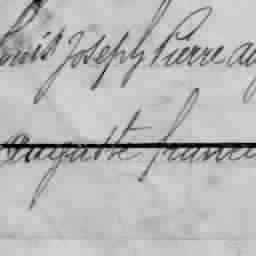 Louis Joseph Pierre au
auguste franci